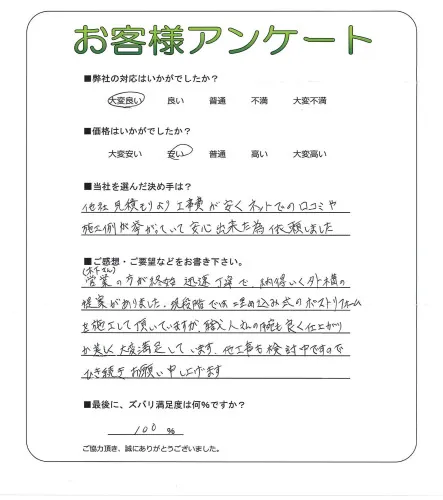 お客様アンケート
■弊社の対応はいかがでしたか？
大変良い 良い 普通 不満 大変不満
■価格はいかがでしたか？
大変安い 安い 普通 高い 大変高い
■当社を選んだ決め手は？
他社見積もりより工事費が安くネットでの口コミや
施工例が挙がっていて安心出来た為依頼しました
■ご感想・ご要望などをお書き下さい。
営業の方が終始迅速丁寧で、納得いく外構の
提案がありました。現段階では埋め込み式のポストリフォーム
を施工して頂いていますが、職人さんの腕も良く仕上がり
が美しく大変満足しています。他工事も検討中ですので
引き続きお願い申し上げます
■最後に、ズバリ満足度は何％ですか？
100 %
ご協力頂き、誠にありがとうございました。